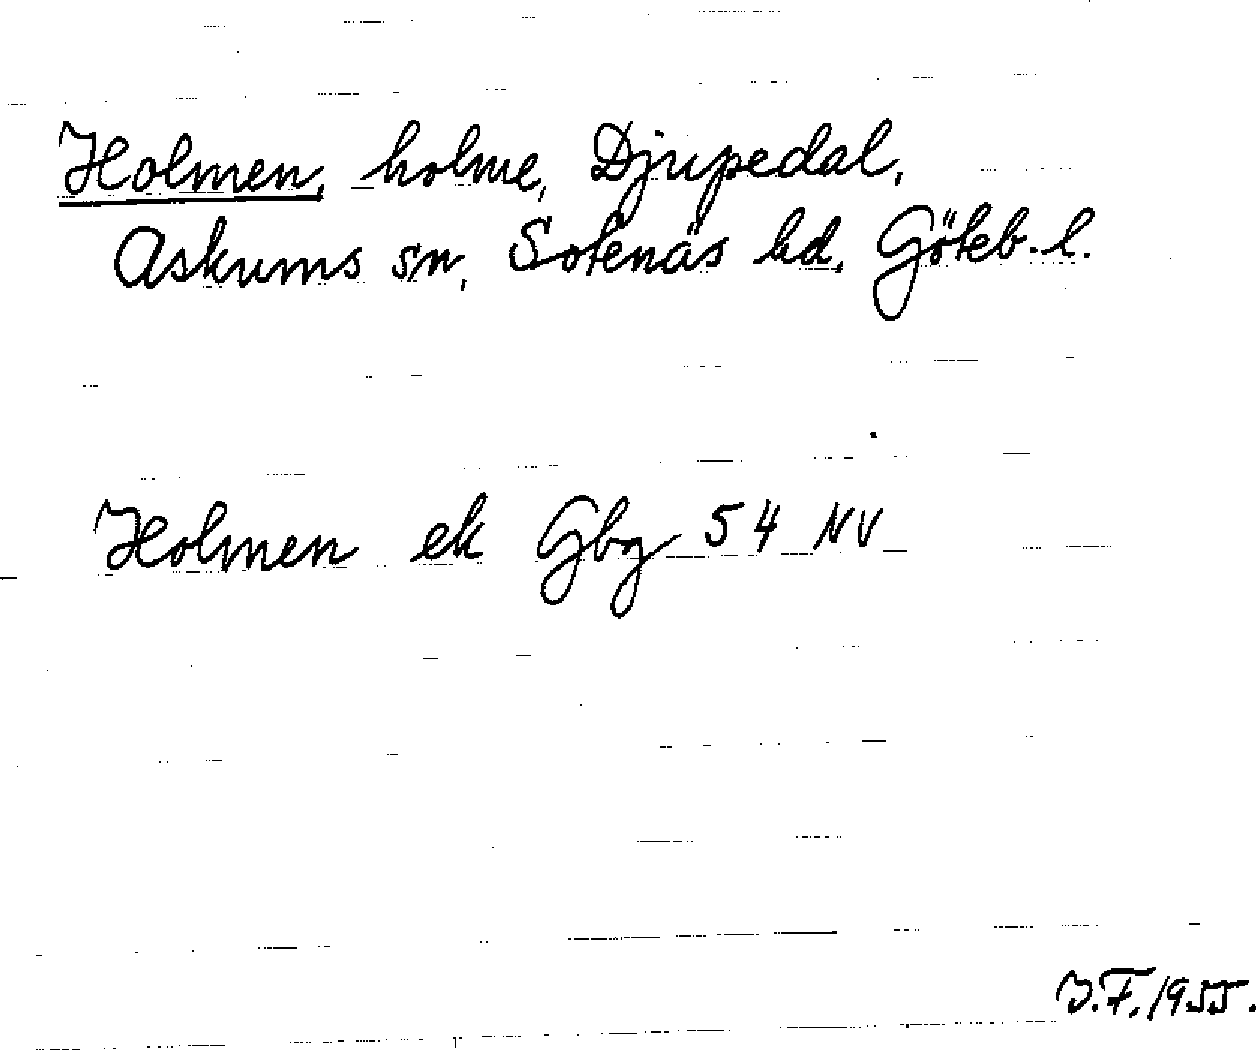 Holmen, holme, Djupedal,
Askums sn, Sotenäs hd, Göteb. l.
Holmen ek Gbg 54 NV
J.F. 1955.